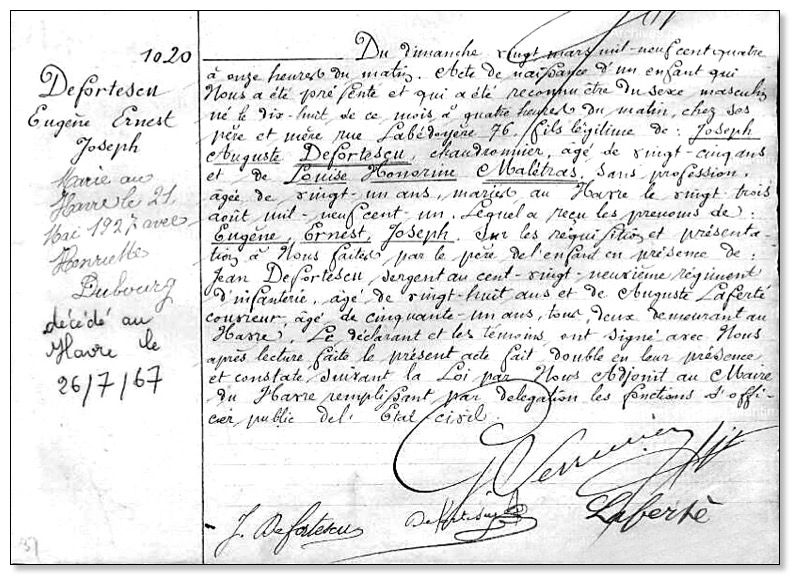 1020
Defortescu
Eugène Ernest
Joseph
Marié au
Havre le 21
Mai 1927 avec
Henriette
Dubourg
décédé au
Havre le
26/7/67
Du dimanche vingt mars mil-neuf cent quatre
à onze heures du matin. Acte de naissance d'un enfant qui
Nous a été présenté et qui a été reconnu être du sexe masculin
né le dix-huit de ce mois à quatre heures du matin, chez ses
père et mère rue Labédoyère 76, fils légitime de : Joseph
Auguste Defortescu, chaudronnier, âgé de vingt-cinq ans
et de Louise Honorine Malétras, sans profession,
âgée de vingt-un ans, mariés au Havre le vingt trois
août mil-neuf cent-un. Lequel a reçu les prénoms de :
Eugène, Ernest, Joseph. Sur les réquisition et présenta-
tion à Nous faites par le père de l'enfant en présence de :
Jean Defortescu, sergent au cent-vingt-neuvième régiment
d'infanterie, âgé de vingt-huit ans et de Auguste Laferté
couvreur, âgé de cinquante-un ans, tous deux demeurant au
Havre. Le déclarant et les témoins ont signé avec Nous
après lecture faite le présent acte fait double en leur présence
et constaté suivant la Loi par Nous Adjoint au Maire
du Havre remplissant par délégation les fonctions d'offi-
cier public de l'Etat civil.
J. Defortescu
Defortescu
Laferté